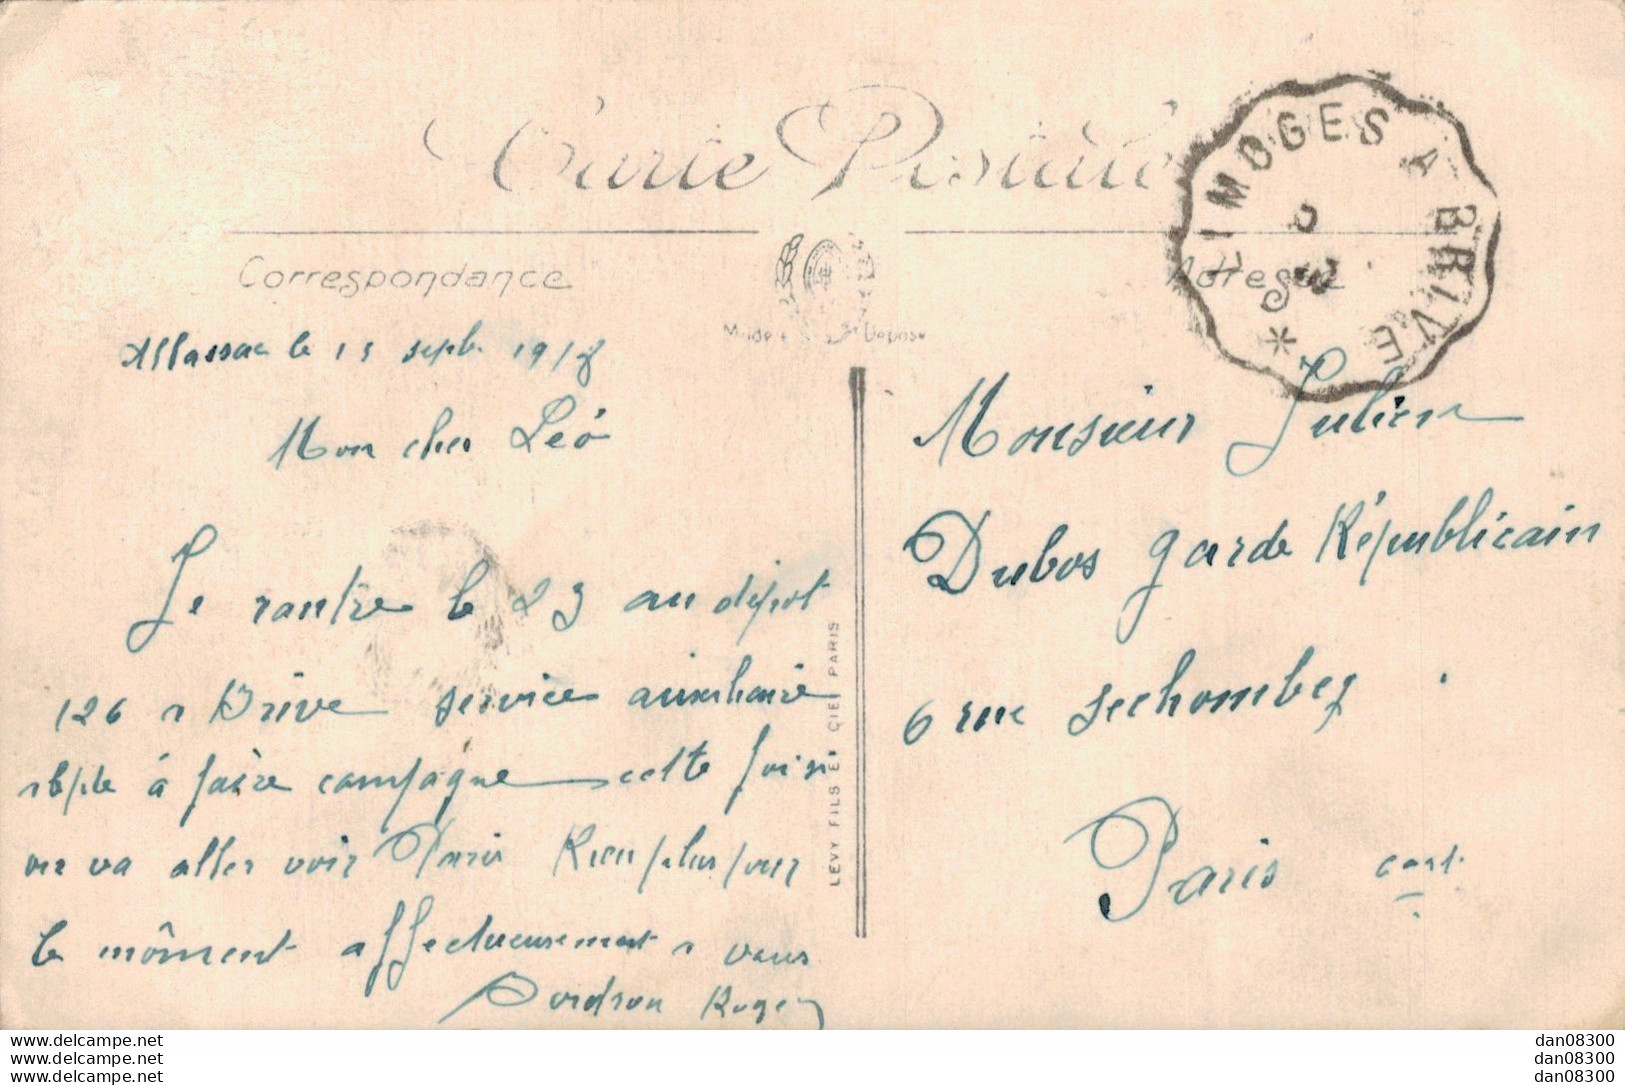 Carte Postale
Correspondance
Adresse
LIMOGES A BRIVE
Allassac le 15 sept. 1918
Mon cher Léo
Je rantre le 23 au dépot
126 a Brive service auxiliaire
apte à faire campagne cette fois
on va aller voir Paris Rien plus pour
le môment affectueusement a vous
Roger
LEVY FILS ET CIE, PARIS
Monsieur Julien
Dubos garde Républicain
6 rue Sechomberg
Paris
www.delcampe.net
www.delcampe.net
www.delcampe.net
dan08300
dan08300
dan08300